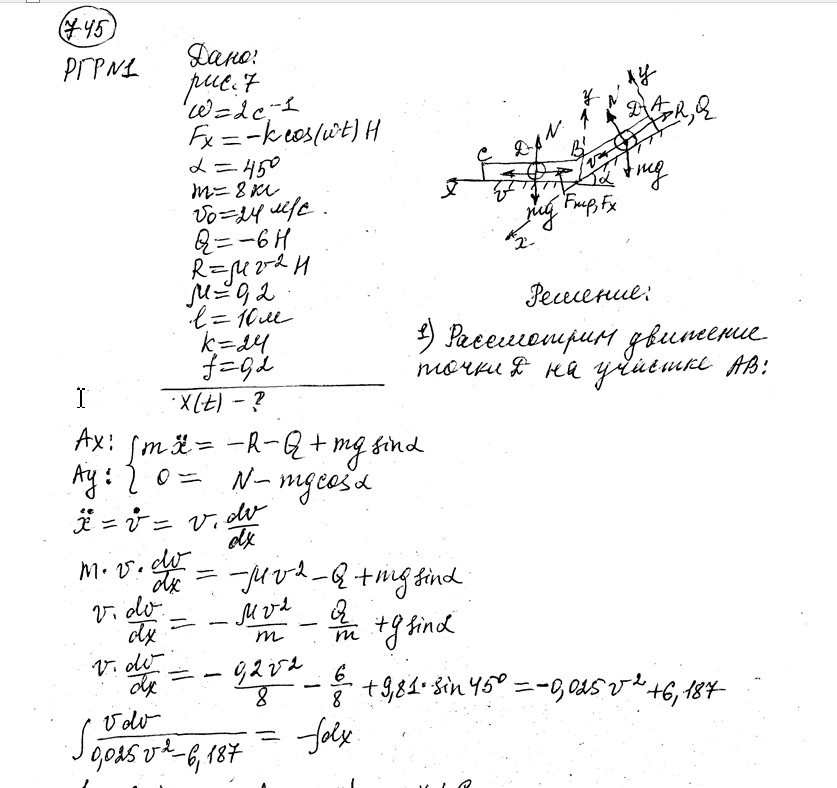 745
РГР N1
Дано:
рис. 7
ω = 2 c⁻¹
Fx = -k cos(ωt) Н
α = 45°
m = 8 кг
v₀ = 24 м/с.
Q = -6 Н
R = μv² Н
μ = 0,2
l = 10 м
k = 24
f = 0,2
x(t) - ?
y
y
N
D
A
R, Q
D
N
B
C
v
α
mg
x
v
mg
Fтр, Fx
x
Решение:
1) Рассмотрим движение
точки D на участке AB:
Ax: { mẍ = -R - Q + mg sinα
Ay: { 0 = N - mg cosα
ẍ = v̇ = v · dv/dx
m · v · dv/dx = -μv² - Q + mg sinα
v · dv/dx = - μv²/m - Q/m + g sinα
v · dv/dx = - 0,2v²/8 - 6/8 + 9,81 · sin 45° = -0,025 v² + 6,187
∫ v dv/(0,025 v² - 6,187) = -∫dx